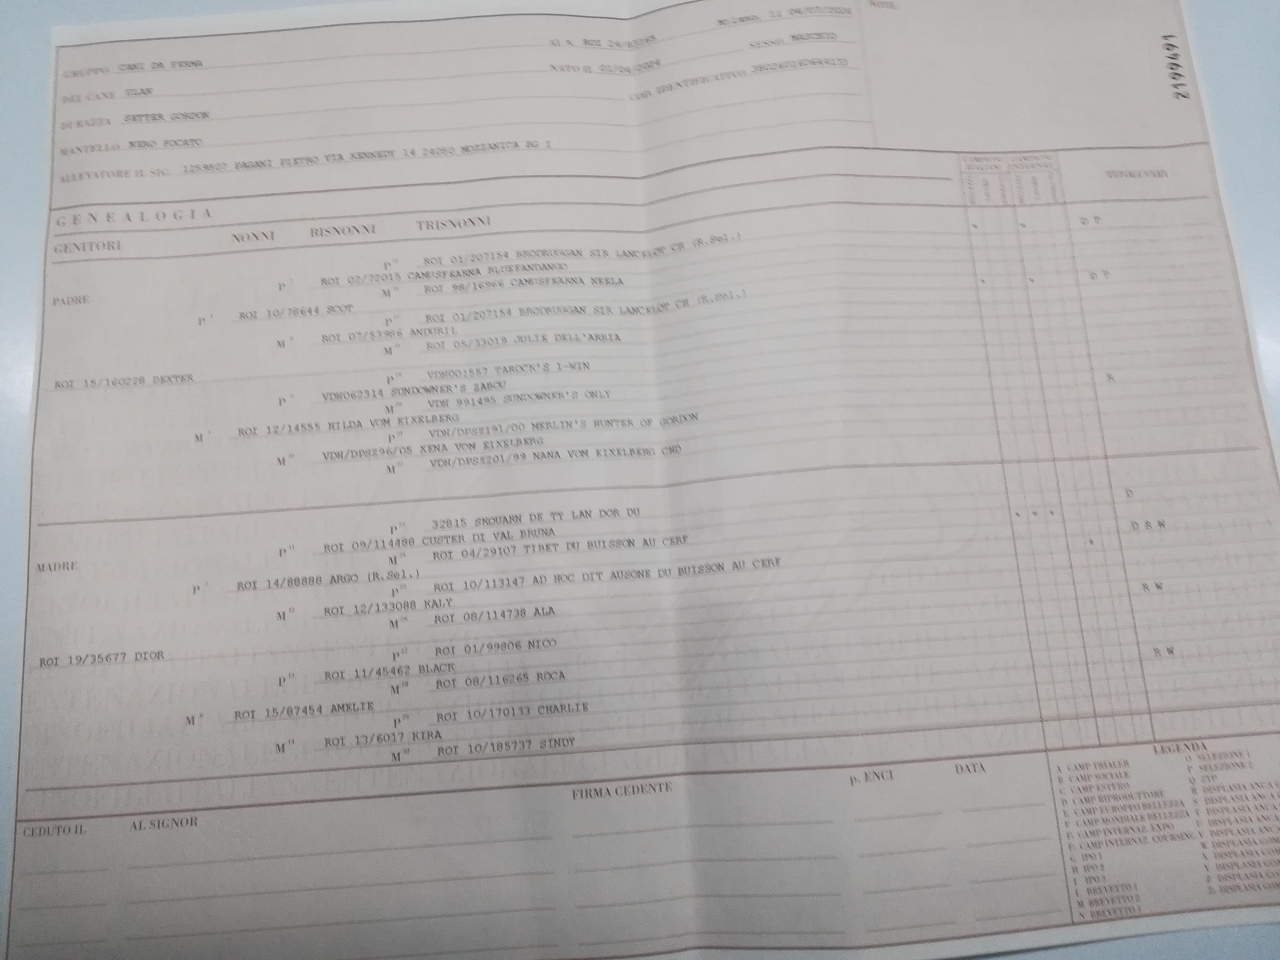 NOTE
GRUPPO CANI DA FERMA
AL N. ROI
DEL CANE ULAN
NATO IL 02/04/2024
SESSO MASCHIO
DI RAZZA SETTER GORDON
COD. IDENTIFICATIVO
MANTELLO NERO FOCATO
ALLEVATORE IL SIG. PAGANI PIETRO VIA KENNEDY 14 24050 MOZZANICA BG I
2199461
GENEALOGIA
GENITORI NONNI BISNONNI TRISNONNI
P''' ROI 01/207154 BRODRUGGAN SIR LANCELOT CH (R.Sel.)
PADRE
P'' ROI 02/72015 CAMUSFEARNA BLUEFANDANGO
M''' ROI 98/16966 CAMUSFEARNA NEELA
P' ROI 10/78644 SCOT
P''' ROI 01/207154 BRODRUGGAN SIR LANCELOT CH (R.Sel.)
M'' ROI 07/53986 ANDURIL
M''' ROI 05/33019 JULIE DELL'ARBIA
ROI 15/160228 DEXTER
P''' VDH001557 TAROCK'S I-WIN
P'' VDH062314 SUNDOWNER'S ZABOU
M''' VDH 991495 SUNDOWNER'S ONLY
M' ROI 12/14555 HILDA VOM EIXELBERG
P''' VDH/DPS2191/00 MERLIN'S HUNTER OF GORDON
M'' VDH/DPS296/05 XENA VOM EIXELBERG
M''' VDH/DPS2201/99 NANA VOM EIXELBERG CHD
P''' 32815 SKOUARN DE TY LAN DOR DU
MADRE
P'' ROI 09/114488 CUSTER DI VAL BRUNA
M''' ROI 04/29107 TIBET DU BUISSON AU CERF
P' ROI 14/88888 ARGO (R.Sel.)
P''' ROI 10/113147 AD HOC DIT AUSONE DU BUISSON AU CERF
M'' ROI 12/133088 KALY
M''' ROI 08/114738 ALA
ROI 19/35677 DIOR
P''' ROI 01/99806 NICO
P'' ROI 11/45462 BLACK
M''' ROI 08/116265 ROCA
M' ROI 15/87454 AMELIE
P''' ROI 10/170133 CHARLIE
M'' ROI 13/6017 KIRA
M''' ROI 10/185737 SINDY
D P
D P
R
D
D R W
R W
R W
CEDUTO IL AL SIGNOR FIRMA CEDENTE p. ENCI DATA
LEGENDA
A CAMP TRIALER
B CAMP SOCIALE
C CAMP ESTERO
D CAMP RIPRODUTTORE
E CAMP EUROPEO BELLEZZA
F CAMP MONDIALE BELLEZZA
CAMP INTERNAZ. EXPO
CAMP INTERNAZ. COURSING
G IPO 1
H IPO 2
I IPO 3
L BREVETTO 1
M BREVETTO 2
N BREVETTO 3
O SELEZIONE 1
P SELEZIONE 2
Q ZTP